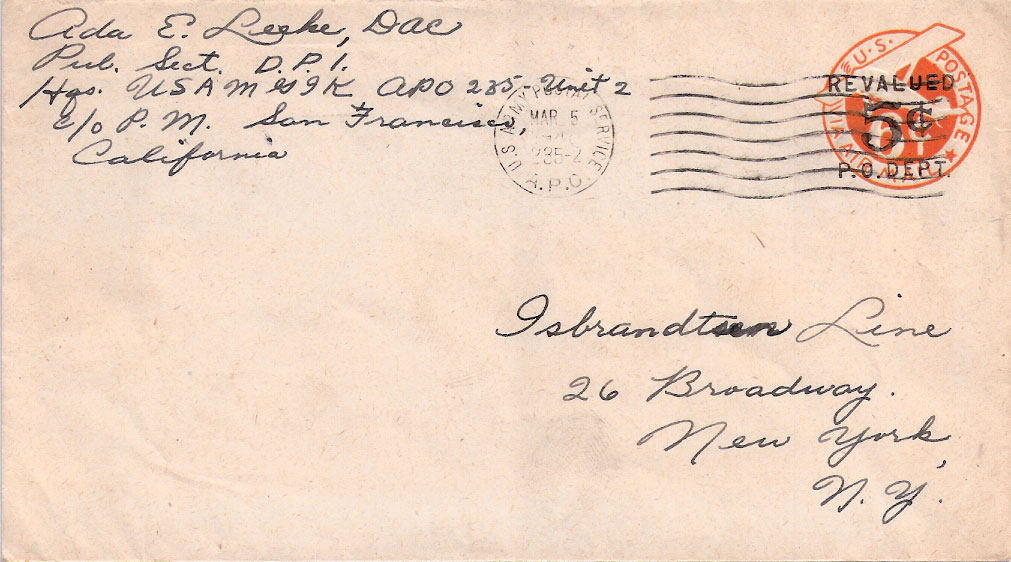 Ada E. Leehe, DAC
Pub. Sect. D.P.I.
Hqs. USAMGIK APO 235, Unit 2
c/o P.M. San Francisco,
California
U.S. ARMY POSTAL SERVICE
MAR 5
235-2
A.P.O.
U.S. POSTAGE
VIA AIR MAIL
6¢
REVALUED
5¢
P.O. DEPT.
Isbrandtsen Line
26 Broadway.
New York,
N.Y.